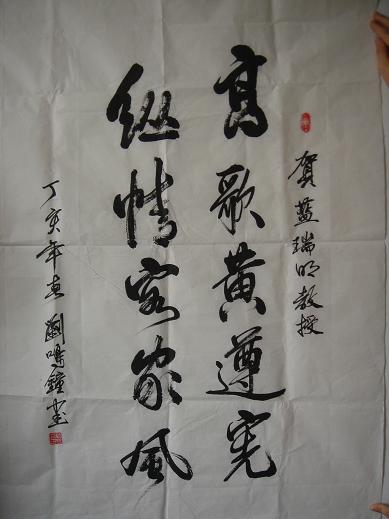 賀藍瑞明教授
高歌黄遵憲
縱情客家風
丁亥年春劉鳴鐘書